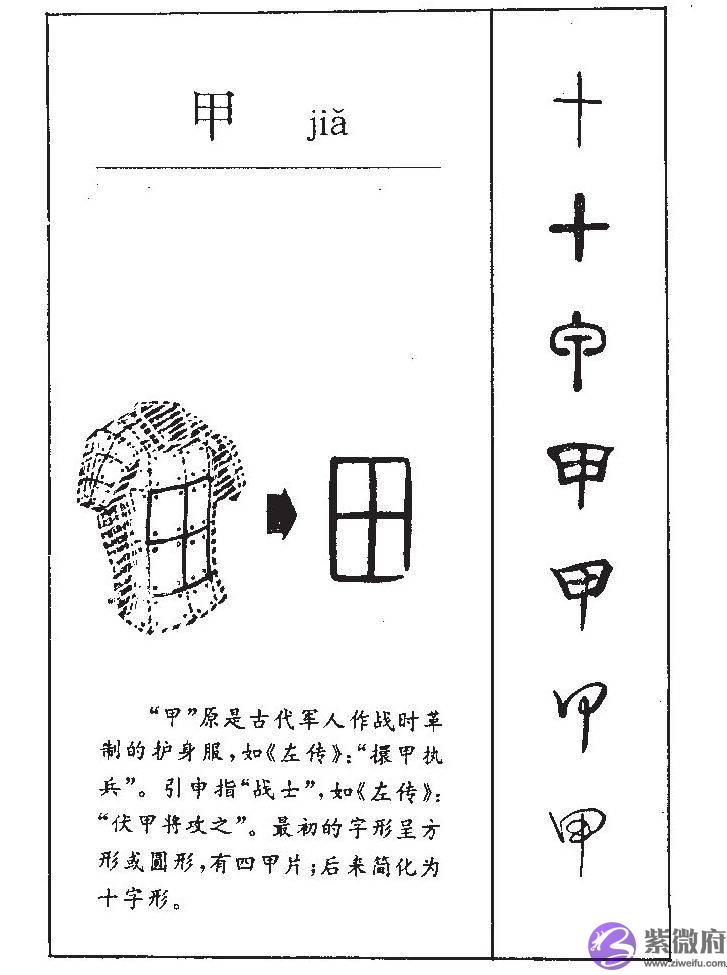 甲 jiǎ
“甲”原是古代军人作战时革
制的护身服，如《左传》：“擐甲执
兵”。引申指“战士”，如《左传》：
“伏甲将攻之”。最初的字形呈方
形或圆形，有四甲片；后来简化为
十字形。
十
十
甲
甲
甲
甲
紫微府
www.ziweifu.com